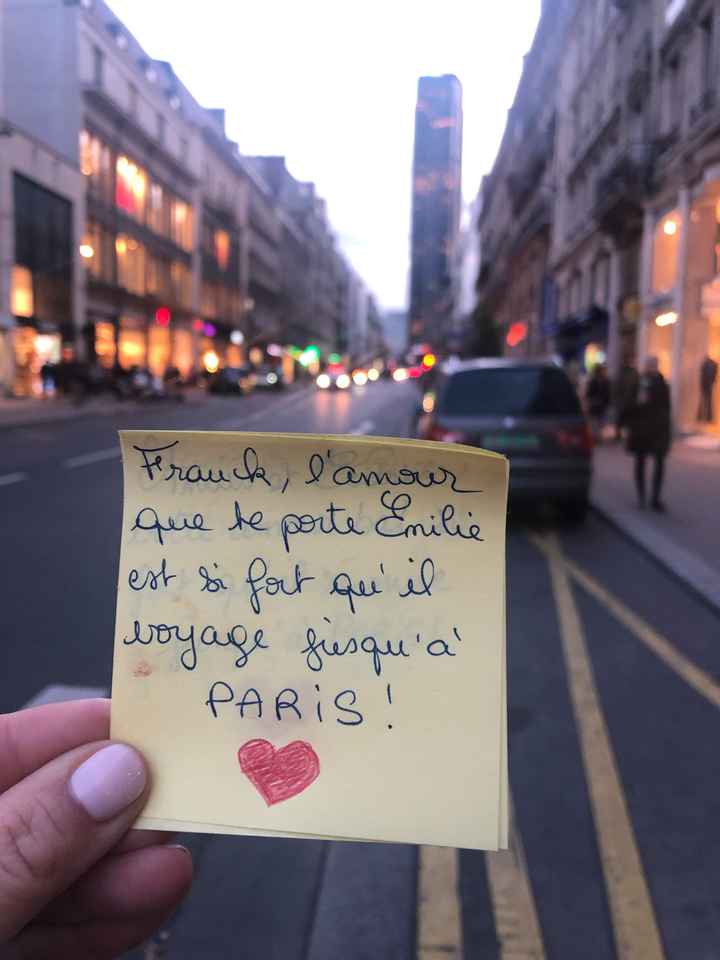 Franck, l'amour
que te porte Émilie
est si fort qu'il
voyage jusqu'à
PARiS !